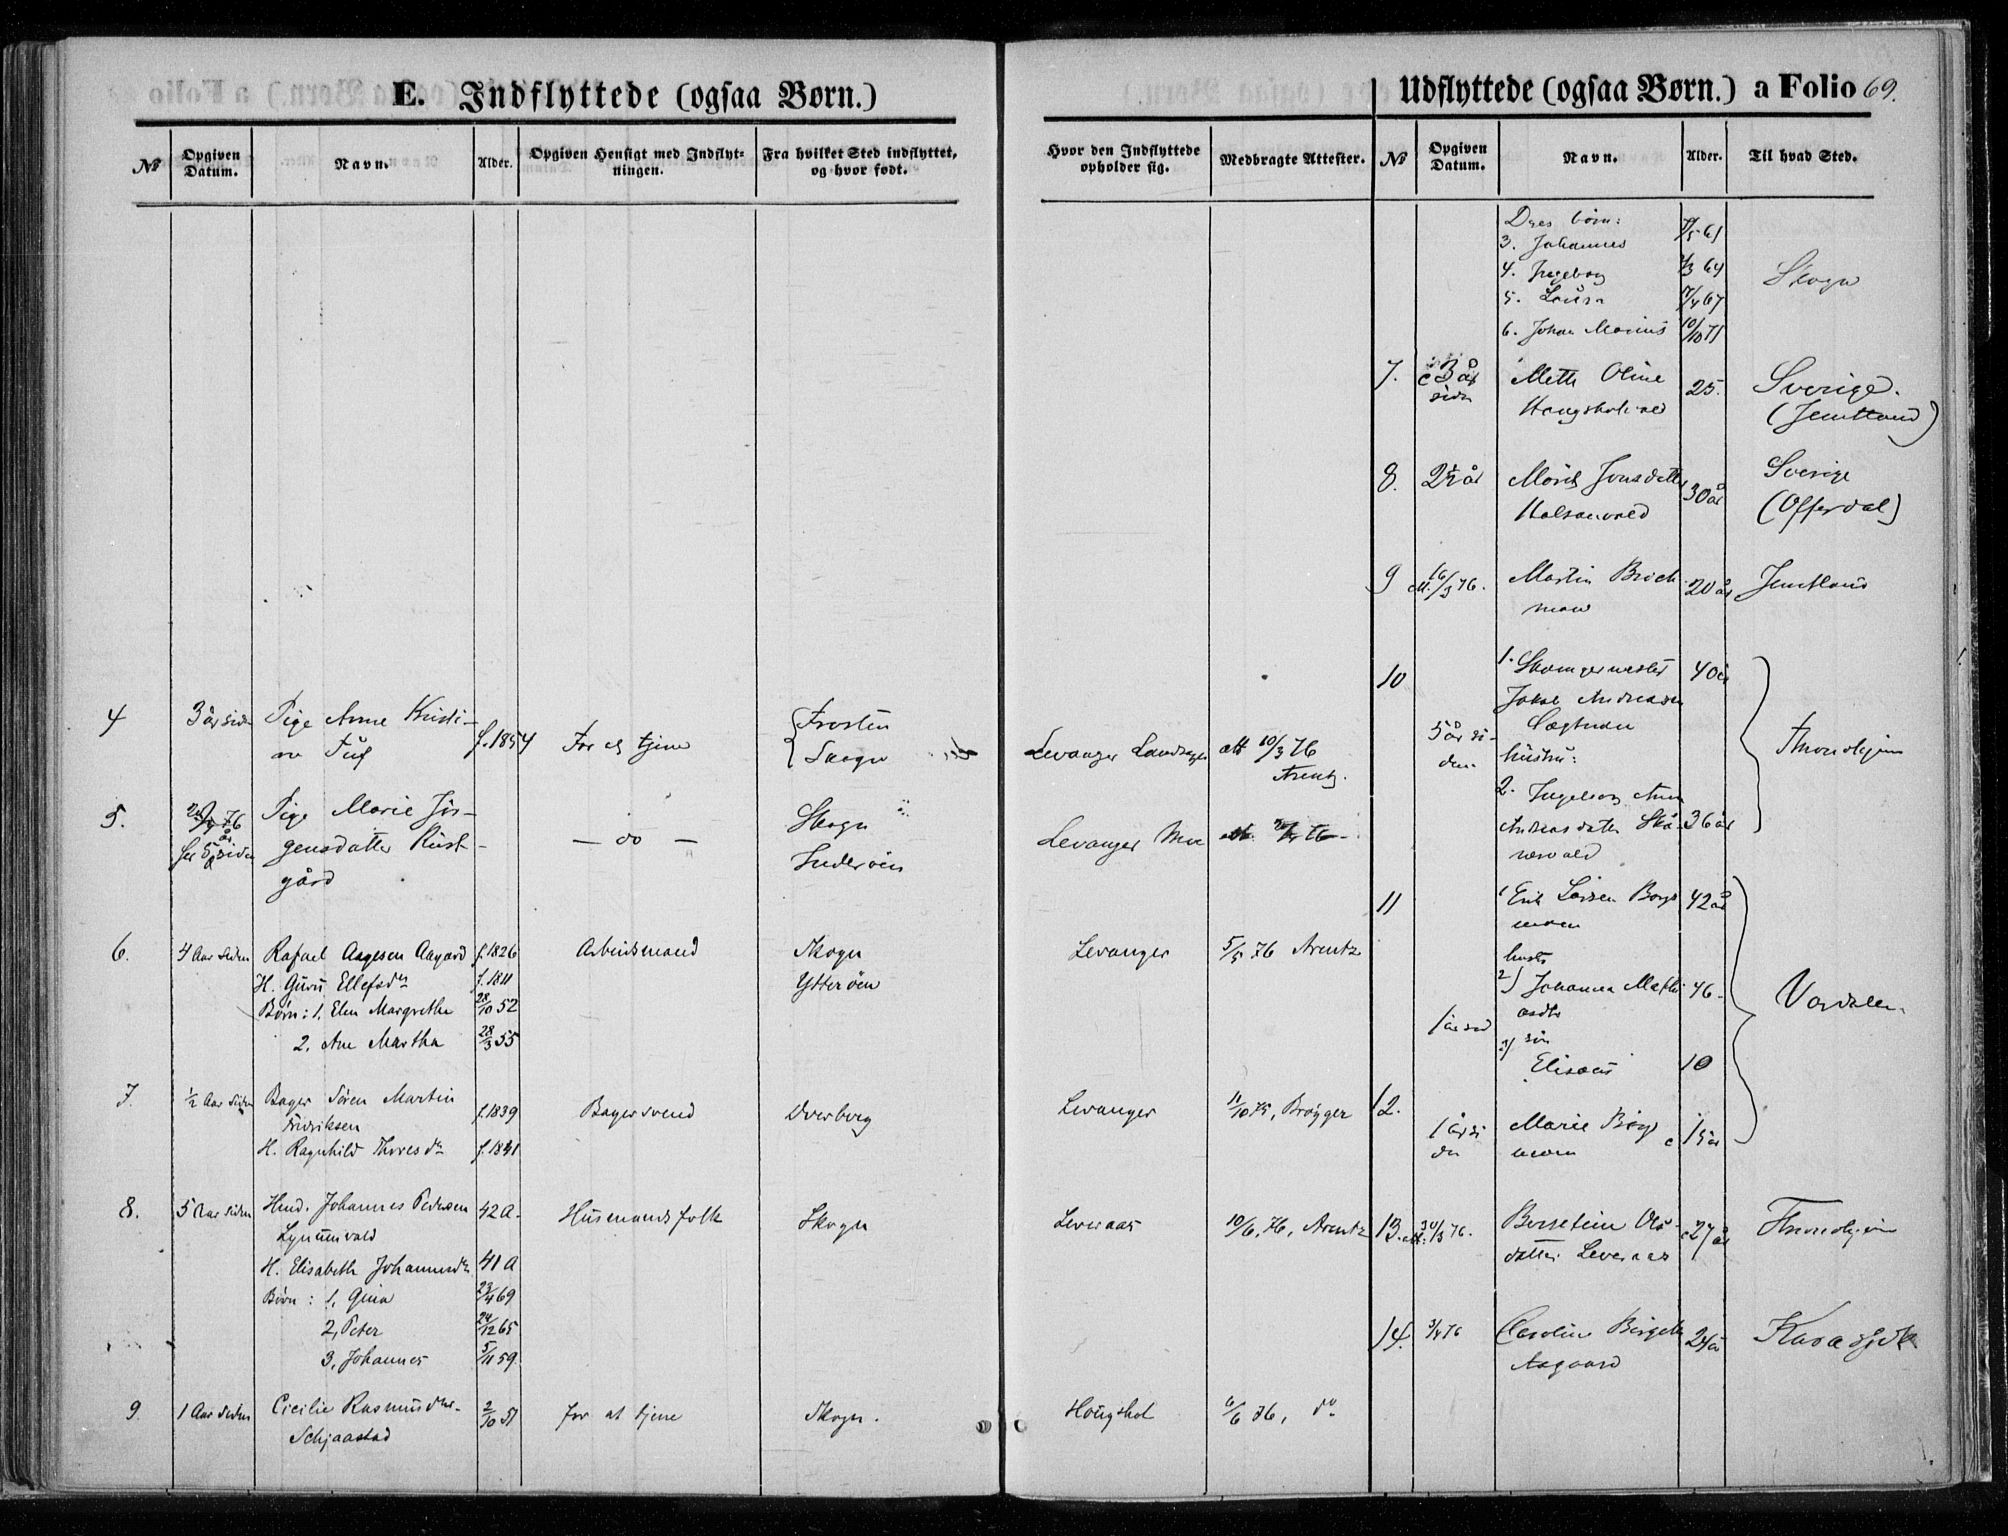 E. Indflyttede (ogsaa Børn.)
№
Opgiven Datum.
Navn.
Alder.
Opgiven Hensigt med Indflytningen.
Fra hvilket Sted indflyttet, og hvor født.
4
3 år siden
Pige Anne Kristi-
ne
f. 1854
For at tjene
Frosten
Skogn
5.
før 5 år siden
Pige Marie Jör-
gensdatter Rust-
gård
— do —
Skogn
Inderöen
6.
4 Aar siden
Rafael Aagesen Aagård
f. 1826
Arbeidsmand
Skogn
H. Guru Ellefsdr
f. 1811
Ytteröen
Børn: 1, Elen Margrethe
28/10 52
2, Ane Martha
28/3 55
7.
1/2 Aar siden
Bager Sören Martin
Fridriksen
f. 1839
Bagersvend
Overberg
H. Ragnhild Thoresdr
f. 1841
8.
5 Aar siden
Husd. Johannes Pedersen
42 A.
Husmandsfolk
Skogn
H. Elisabeth Johannesdr
41 A
Børn: 1, Gina
23/4 69
2, Peter
24/12 65
3, Johannes
5/11 59
9
1 Aar siden
Cicilie Rasmusdtr.
Schjaastad
2/10 51
for at tjene
Skogn.
Udflyttede (ogsaa Børn.) a Folio 69.
Hvor den Indflyttede opholder sig.
Medbragte Attester.
№
Opgiven Datum.
Navn.
Alder.
Til hvad Sted.
Levanger Landsogn
att 10/3 76
Arentz.
Levanger Moe
Levanger
5/5 76 Arentz
Levanger
11/10 75, Brøgger
Leveraas
10/6, 76, Arentz
Hougskot
6/6 76, do
Deres börn:
3. Johannes
4. Ingeborg
3/3 64
5. Laura
17/4 67
6. Johan Marius
10/10 71
Skogn
7.
c 3 år
siden
Mette Oline
25.
Sverige.
(Jemtland)
8.
2 1/2 år
Marit Jonsdatter
Halsanvald
30 år
Sverige
(Offerdal)
9
att. 16/3 76.
Martin Brech
moe
20 år
Jemtland
10
5 år si-
den
1. Skomagermester
Jakob Andreasen
40 år
hustru:
2. Ingeborg Anna
Andreasdatter Skå-
nesvald
36 år
Throndhjem
11
1 år sid
1 Erik Larsen Borgs
moen
42 år
hustr
2) Johanna Mathi
asdtr
46
3) sön
Elisæus
10
Værdalen
12.
1 år si
den
Marie Borgs
moen
c 15 år
13.
att. 30/3 76.
Berntine Ols-
datter Leveraas
c 27 år
Throndhjem
14.
3/4 76
Caroline Birgitte
Aagaard
24 år
Karasjok